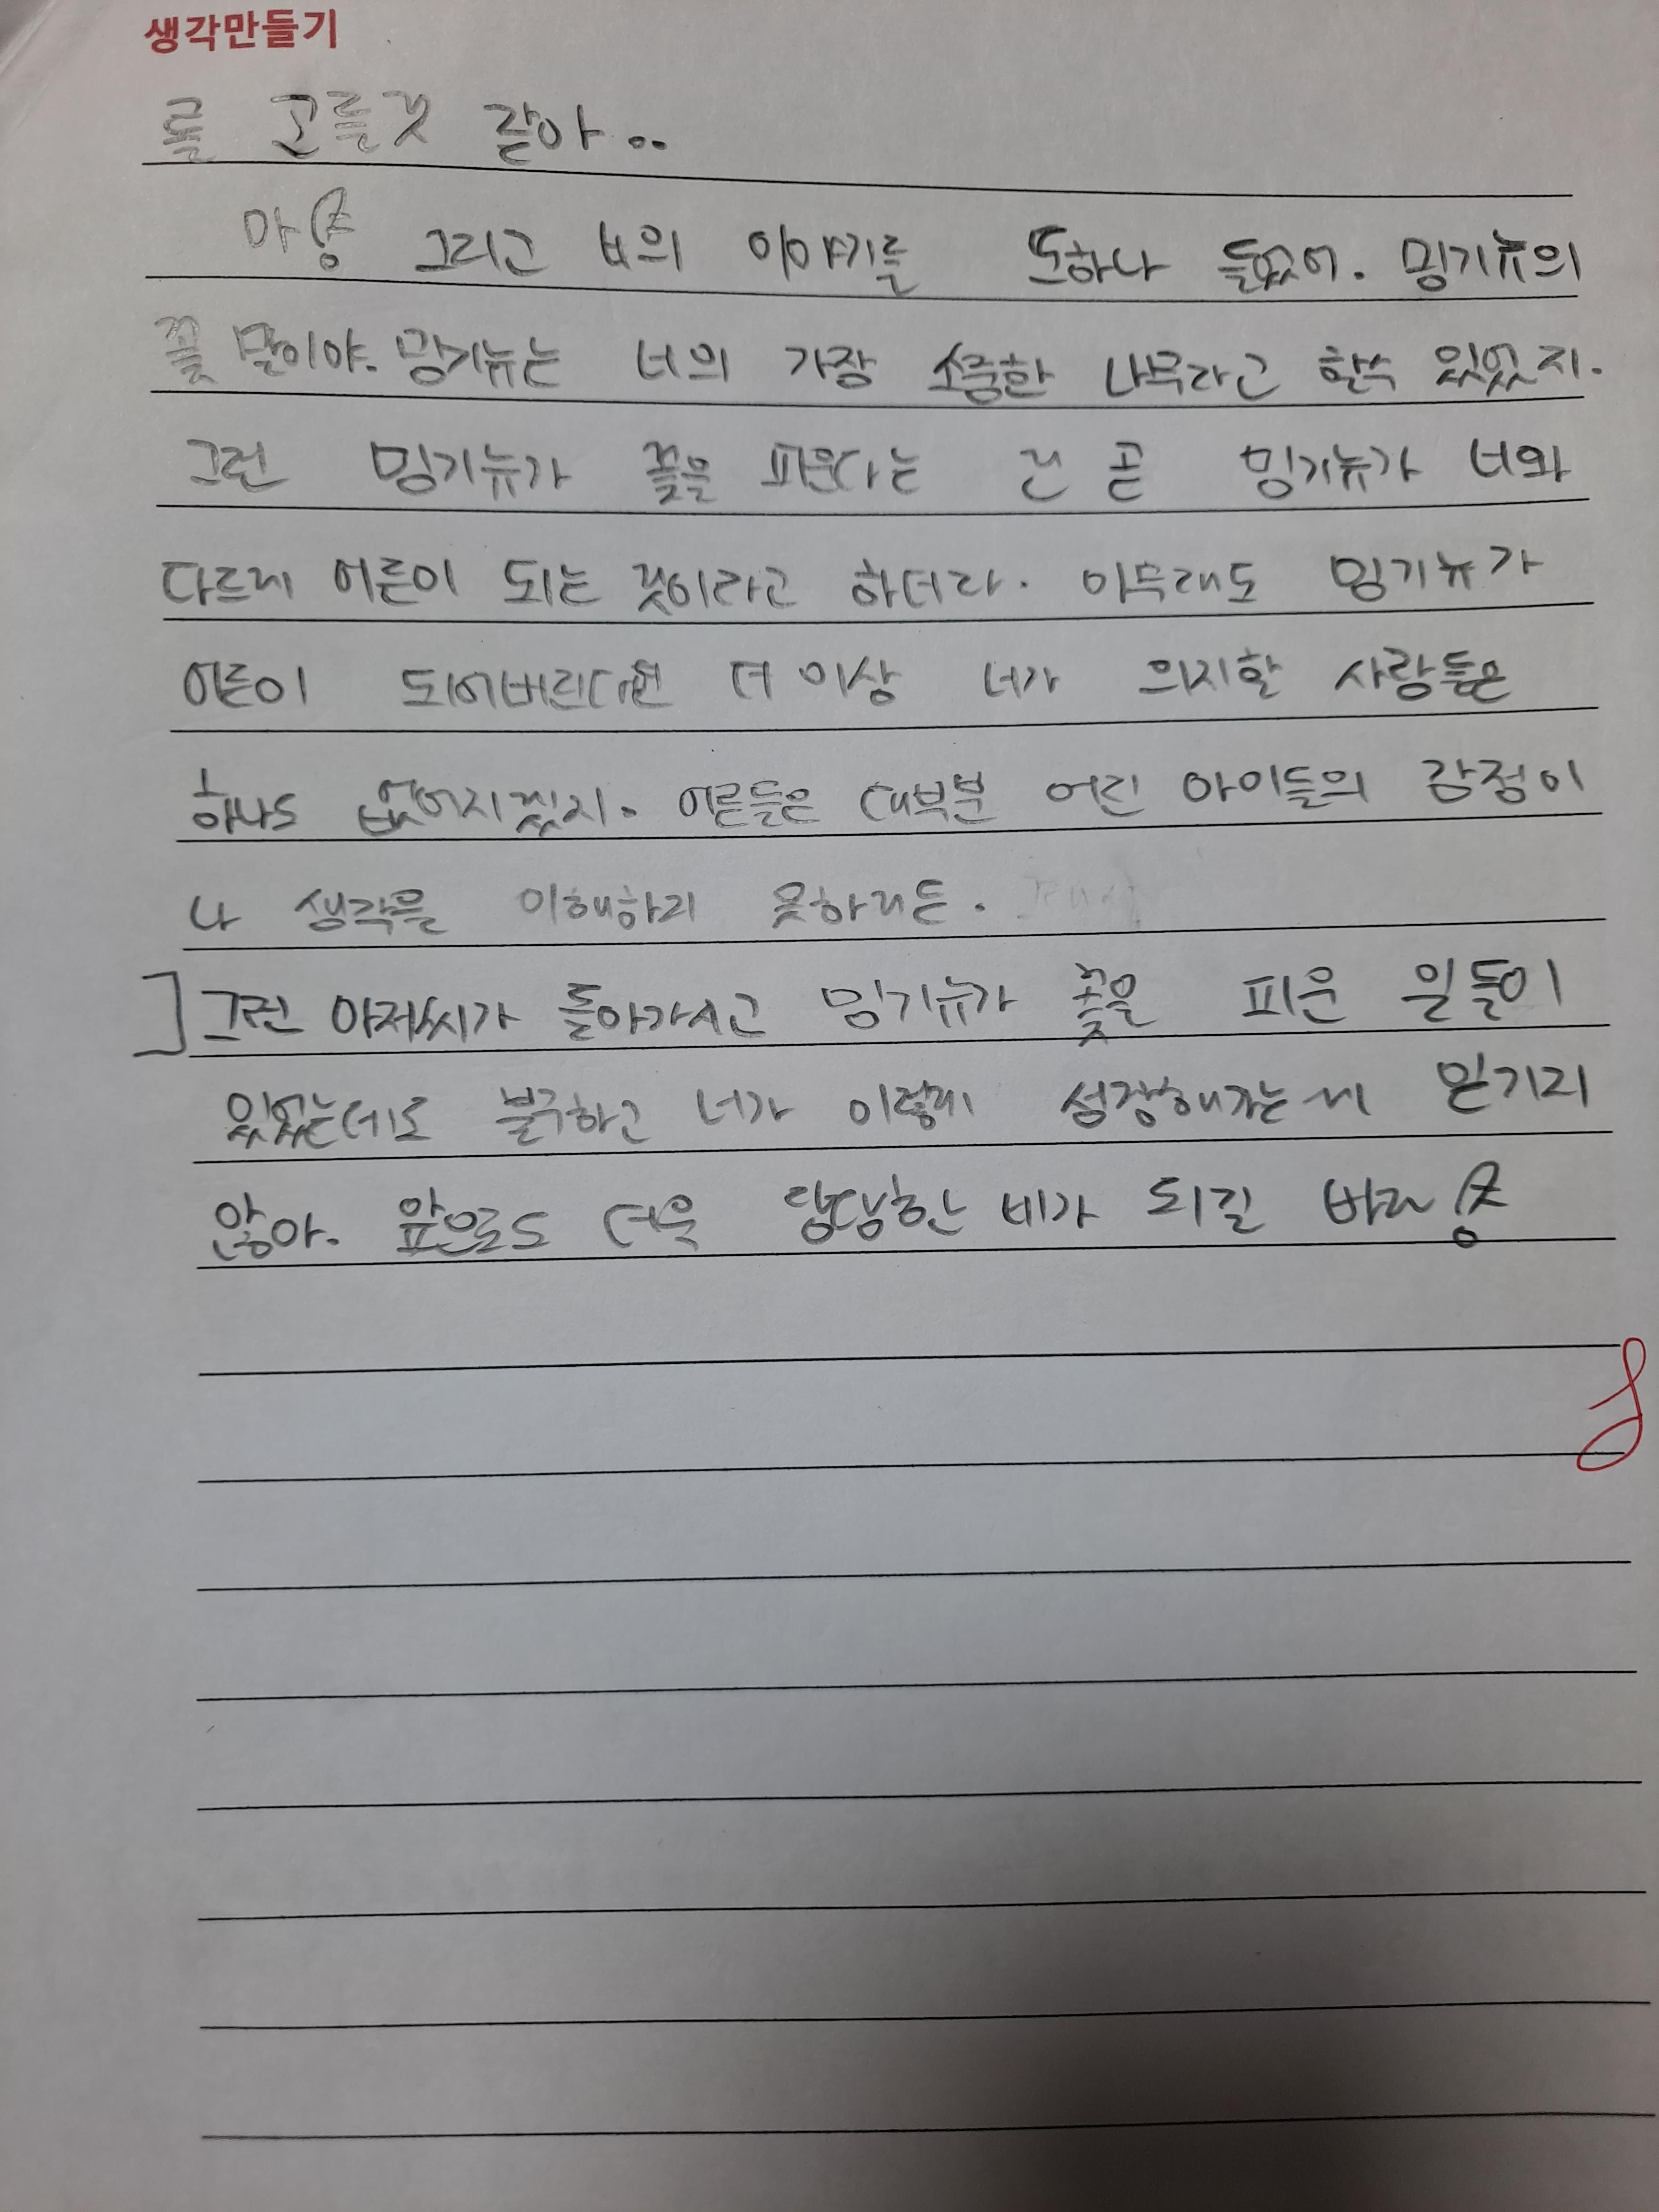 생각만들기
를 고를것 같아..
그리고 너의 이야기를 또하나 들었어. 밍기뉴의
꽃 말이야. 밍기뉴는 너의 가장 소중한 나무라고 할수 있었지.
그런 밍기뉴가 꽃을 피운다는 건 곧 밍기뉴가 너와
다르게 어른이 되는 것이라고 하더라. 아무래도 밍기뉴가
어른이 되어버린다면 더 이상 너가 의지할 사람들은
하나도 없어지겠지. 어른들은 대부분 어린 아이들의 감정이
나 생각을 이해하지 못하거든.
그런 아저씨가 돌아가시고 밍기뉴가 꽃을 피운 일들이
있었는데도 불구하고 너가 이렇게 성장해가는게 믿기지
않아. 앞으로도 더욱 당당한 네가 되길 바라